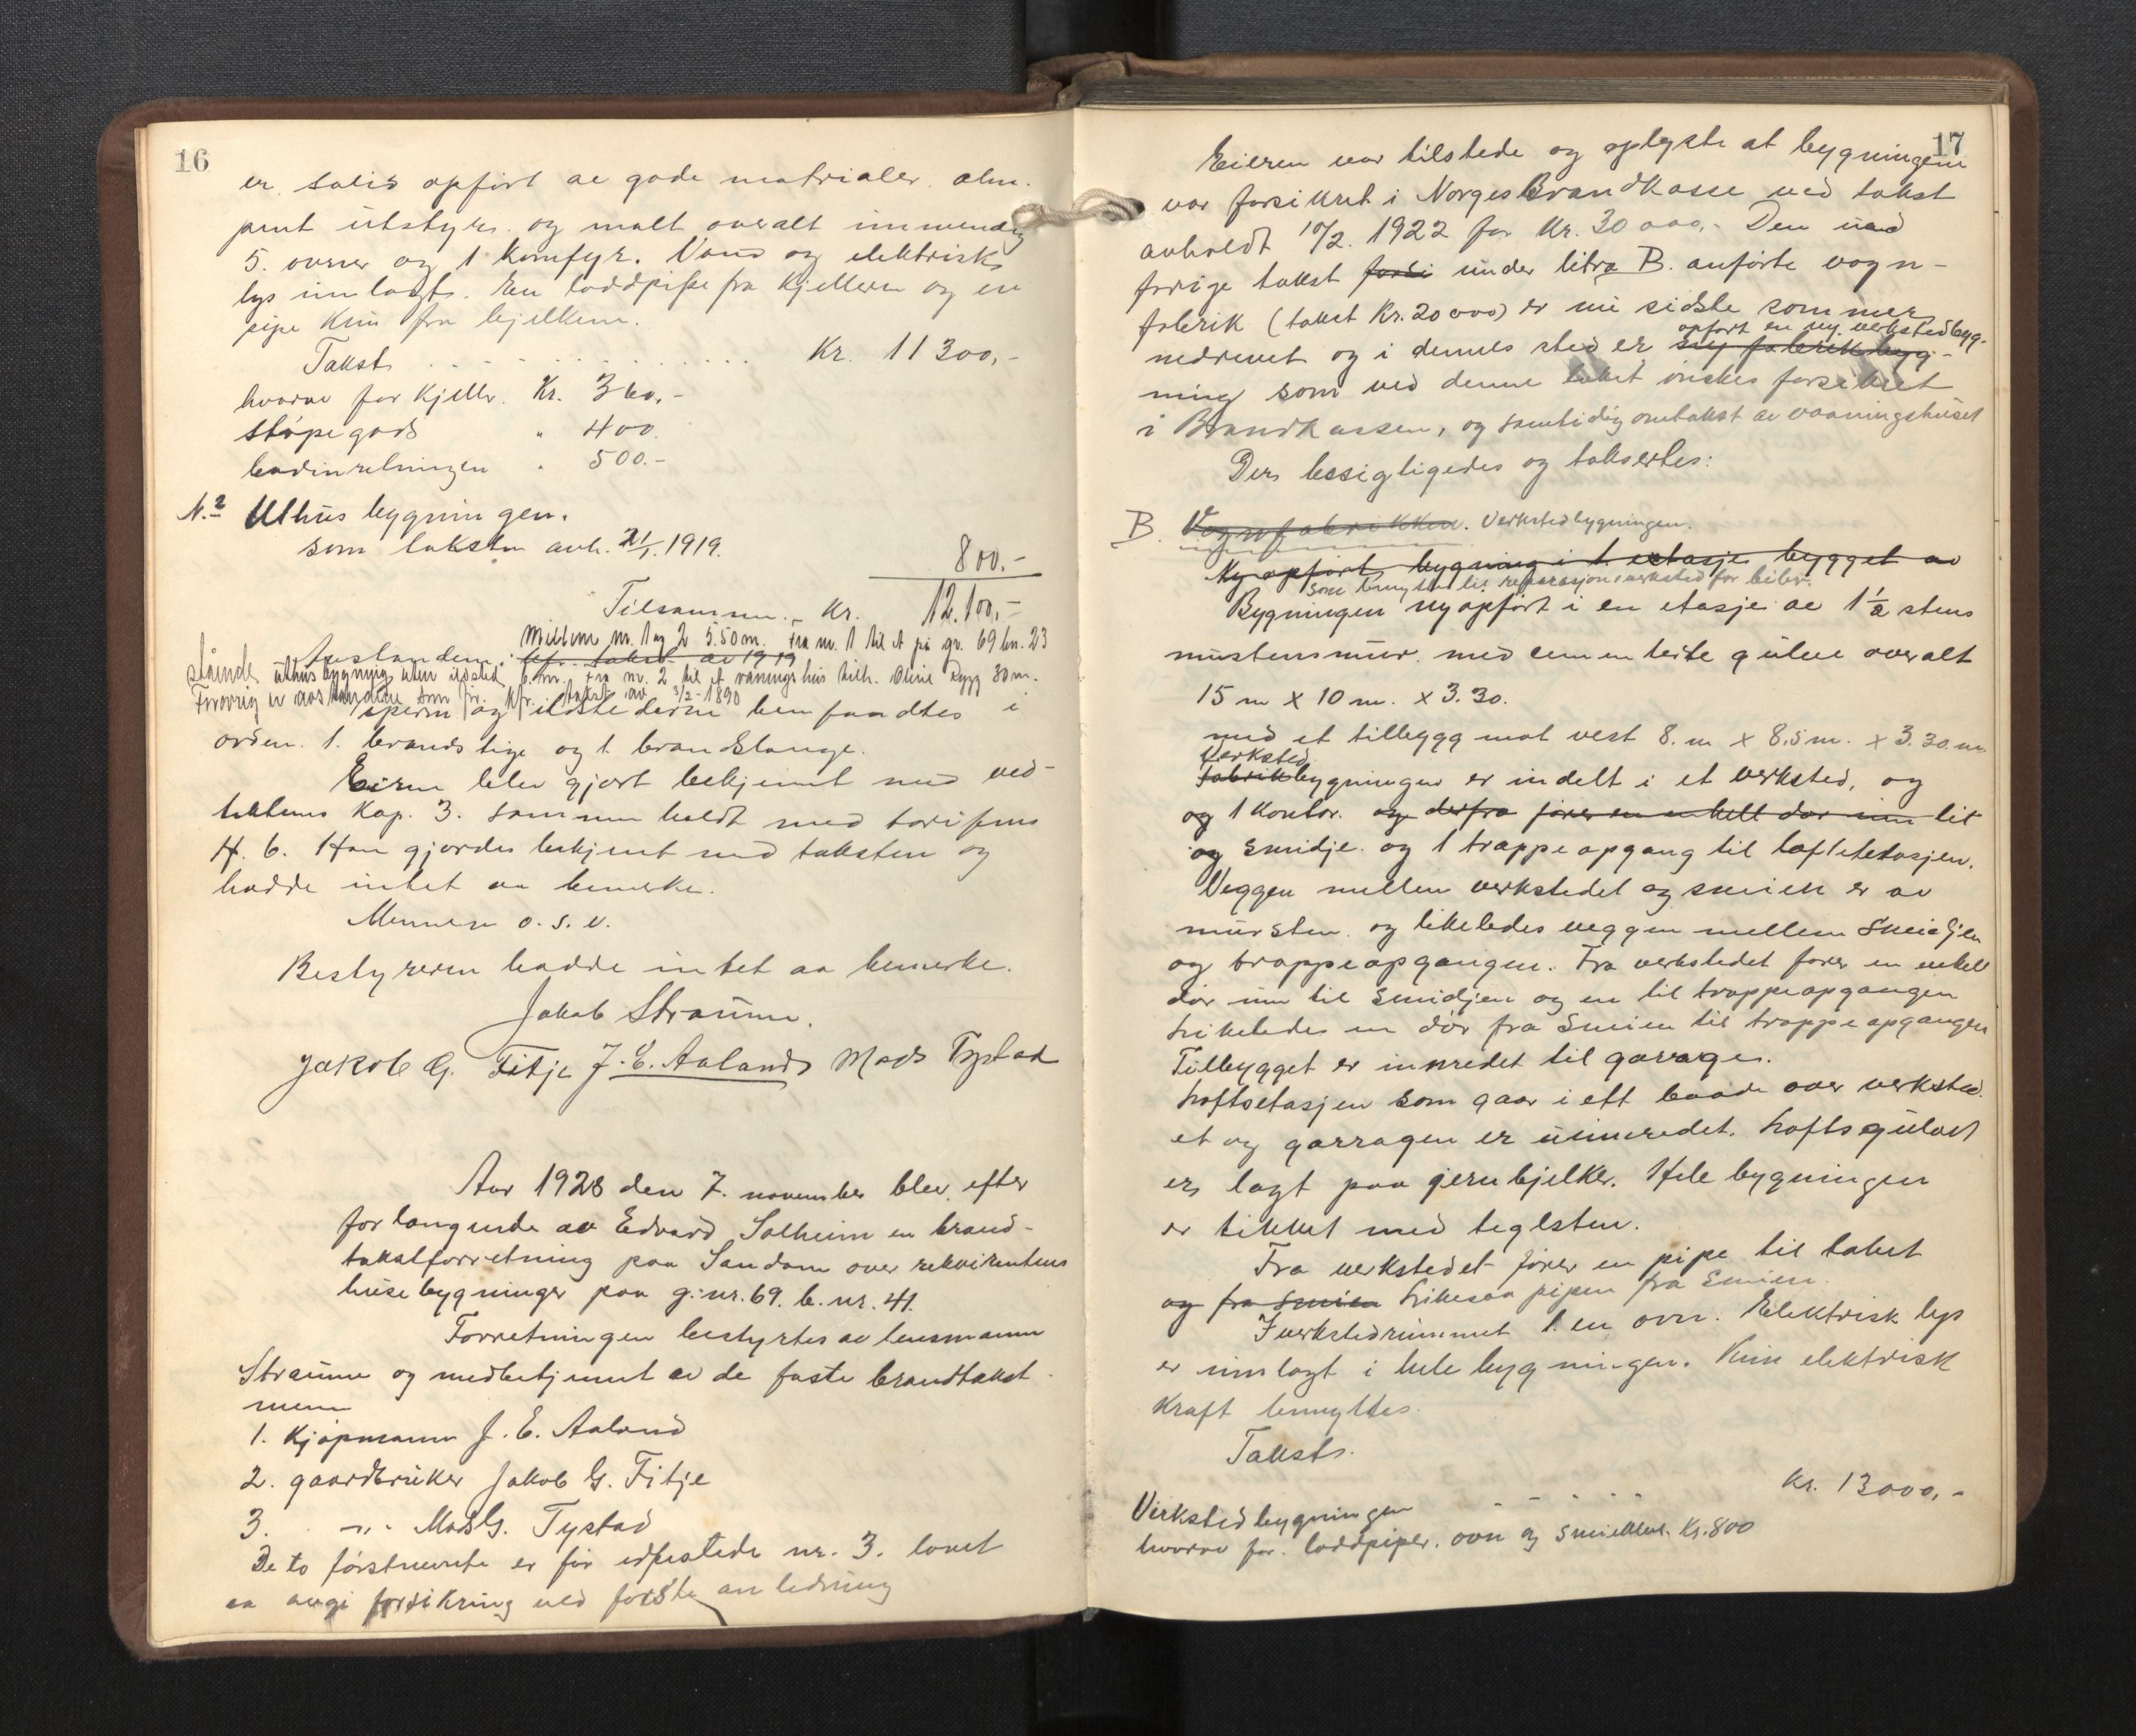 16
er solid opført av gode matrialer. alm.
pent utstyr og malt overalt innvendig
5. ovner og 1 komfyr. Vand og elektrisk
lys innlagt. En loddpipe fra kjelleren og en
pipe kun fra bjelken.
Takst . . . . . . . . . . Kr. 11300,-
hvorav for kjeller. Kr. 360,-
støpegods " 400.
badinretningen " 500.-
N.2 Uthusbygningen.
som taksten avh. 21/1. 1919. 800.-
Tilsammen. Kr. 12.100,-
Mellem nr. 1 og 2 5.50 m. Fra nr. 1 til et på gr. 69 bn. 23
Avstandene: kfr. takst av 1919
stående uthusbygning uten ildsted 6.m. Fra nr. 2 til et våningshus tilh. Oline Rygg 30 m.
Forøvrig er avstandene som før. kfr. takst av 3/2-1890
Piperne og ildstederne bemfandtes i
orden. 1. brandstige og 1 brandslange.
Eieren blev gjort bekjent med ved-
tektenes Kap. 3. sammenholdt med tarifens
H. 6. Han gjordes bekjent med taksten og
hadde intet aa bemerke.
Mennene o. s. v.
Bestyreren hadde intet aa bemerke.
Jakob Straume.
Jakob G. Fitje J. E. Aaland Mads Tystad
Aar 1928 den 7. november blev efter
forlangende av Edvard Solheim en brand-
takstforretning paa Sandane over rekvirentens
husebygninger paa g.nr. 69. b.nr. 41.
Forretningen bestyrtes av lensmann
Straume og medbetjent av de faste brandtakst-
menn
1. Kjøpmann J. E. Aaland
2. gaardbruker Jakob G. Fitje
3. -"- Mads G. Tystad
De to førstnevnte er før edfestede nr. 3. lovet
aa avgi forsikring ved første anledning
17
Eieren var tilstede og oplyste at bygningene
var forsikret i Norges Brandkasse ved takst
avholdt 10/2. 1922 for Kr. 30000,- Den ved
forrige takst under litra B. anførte vogn-
fabrik (takst Kr. 20000) er nu sidste sommer
opført en ny verkstedbyg-
nedrevet og i dennes sted er ny fabrikbyg-
ning som ved denne takst ønskes forsikret
i Brandkassen, og samtidig omtakst av vaaningshuset
Der besigtigedes og takseres:
B. Vognfabrikken. Verkstedbygningen.
Nyopført bygning i 1. etasje bygget av
som benyttes til reparasjonsverksted for biler.
Bygningen nyopført i en etasje av 1½ stens
murstensmur. med cementerte gulve overalt
15 m x 10 m. x 3.30.
med et tillbygg mot vest 8. m x 8,5 m. x 3.30. m
Verksted
fabrikbygningen er indelt i et verksted, og
og 1 kontor. og derfra fører en enkelt dør inn til
og Smidje. og 1 trappeopgang til loftetasjen.
Veggen mellem verkstedet og smien er av
mursten. og likeledes veggen mellem Smidjen
og trappeopgangen. Fra verkstedet fører en enkelt
dør inn til Smidjen og en til trappeopgangen
Likeledes en dør fra Smien til trappeopgangen
Tillbygget er innredet til garrage.
Loftsetasjen som gaar i ett baade over verksted.
et og garragen er uinnredet. Loftsgulvet
er lagt paa jernbjelker. Hele bygningen
er tekket med teglsten.
Fra verkstedet fører en pipe til taket
og fra smien Likesaa pipen fra Smien.
I verkstedrummet 1. en ovn. Elektrisk lys
er innlagt i hele bygningen. Kun elektrisk
kraft benyttes.
Takst.
Verkstedbygningen - - - - - Kr. 13000,-
hvorav for. loddpiper. ovn og Kr. 800